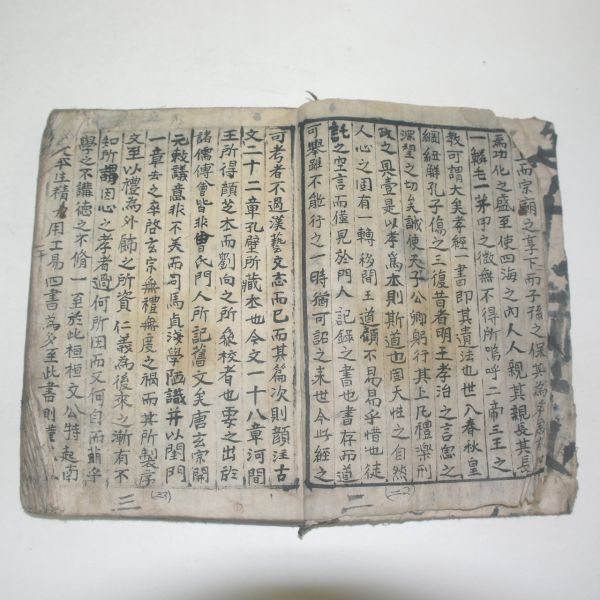 上而宗廟之享下而子孫之保其為
為功化之盛至使四海之內人人親其親長其長
一鱗毛一第甲之微無不得所嗚呼二帝三王之
教可謂大矣孝經一書即其遺法也世入春秋皇
綱紐觧孔子傷之三復昔者明王孝治之言思之
深望之切矣誠使天子公卿躬行其上凡禮樂刑
政之具壹是以孝為本則斯道也固天性之自然
人心之固有一轉移間王道顧不易易乎惜也徒
託之空言而僅見於門人記錄之書也書存而道
可舉雖不能行之一時猶可詔之来世今此經之
二
(二)
可考者不過漢藝文志而已而其篇次則顔注古
文二十二章孔壁所藏本也今文一十八章河間
王所得顔芝本而劉向之所叅校者也要之出於
諸儒傅會皆非曾氏門人所記舊文矣唐玄宗開
元敕議意非不美而司馬貞淺學陋識并以閨門
一章去之卒啓玄宗無禮無度之禍而其所製序
文至以禮為外飾之所資仁義為後來之漸有不
知所謂因心之孝者過何所因而又何自而萠乎
學之不講徳之不脩一至於此桓桓文公特起南
平生精力用工易四書為多至此書則
三
(三)